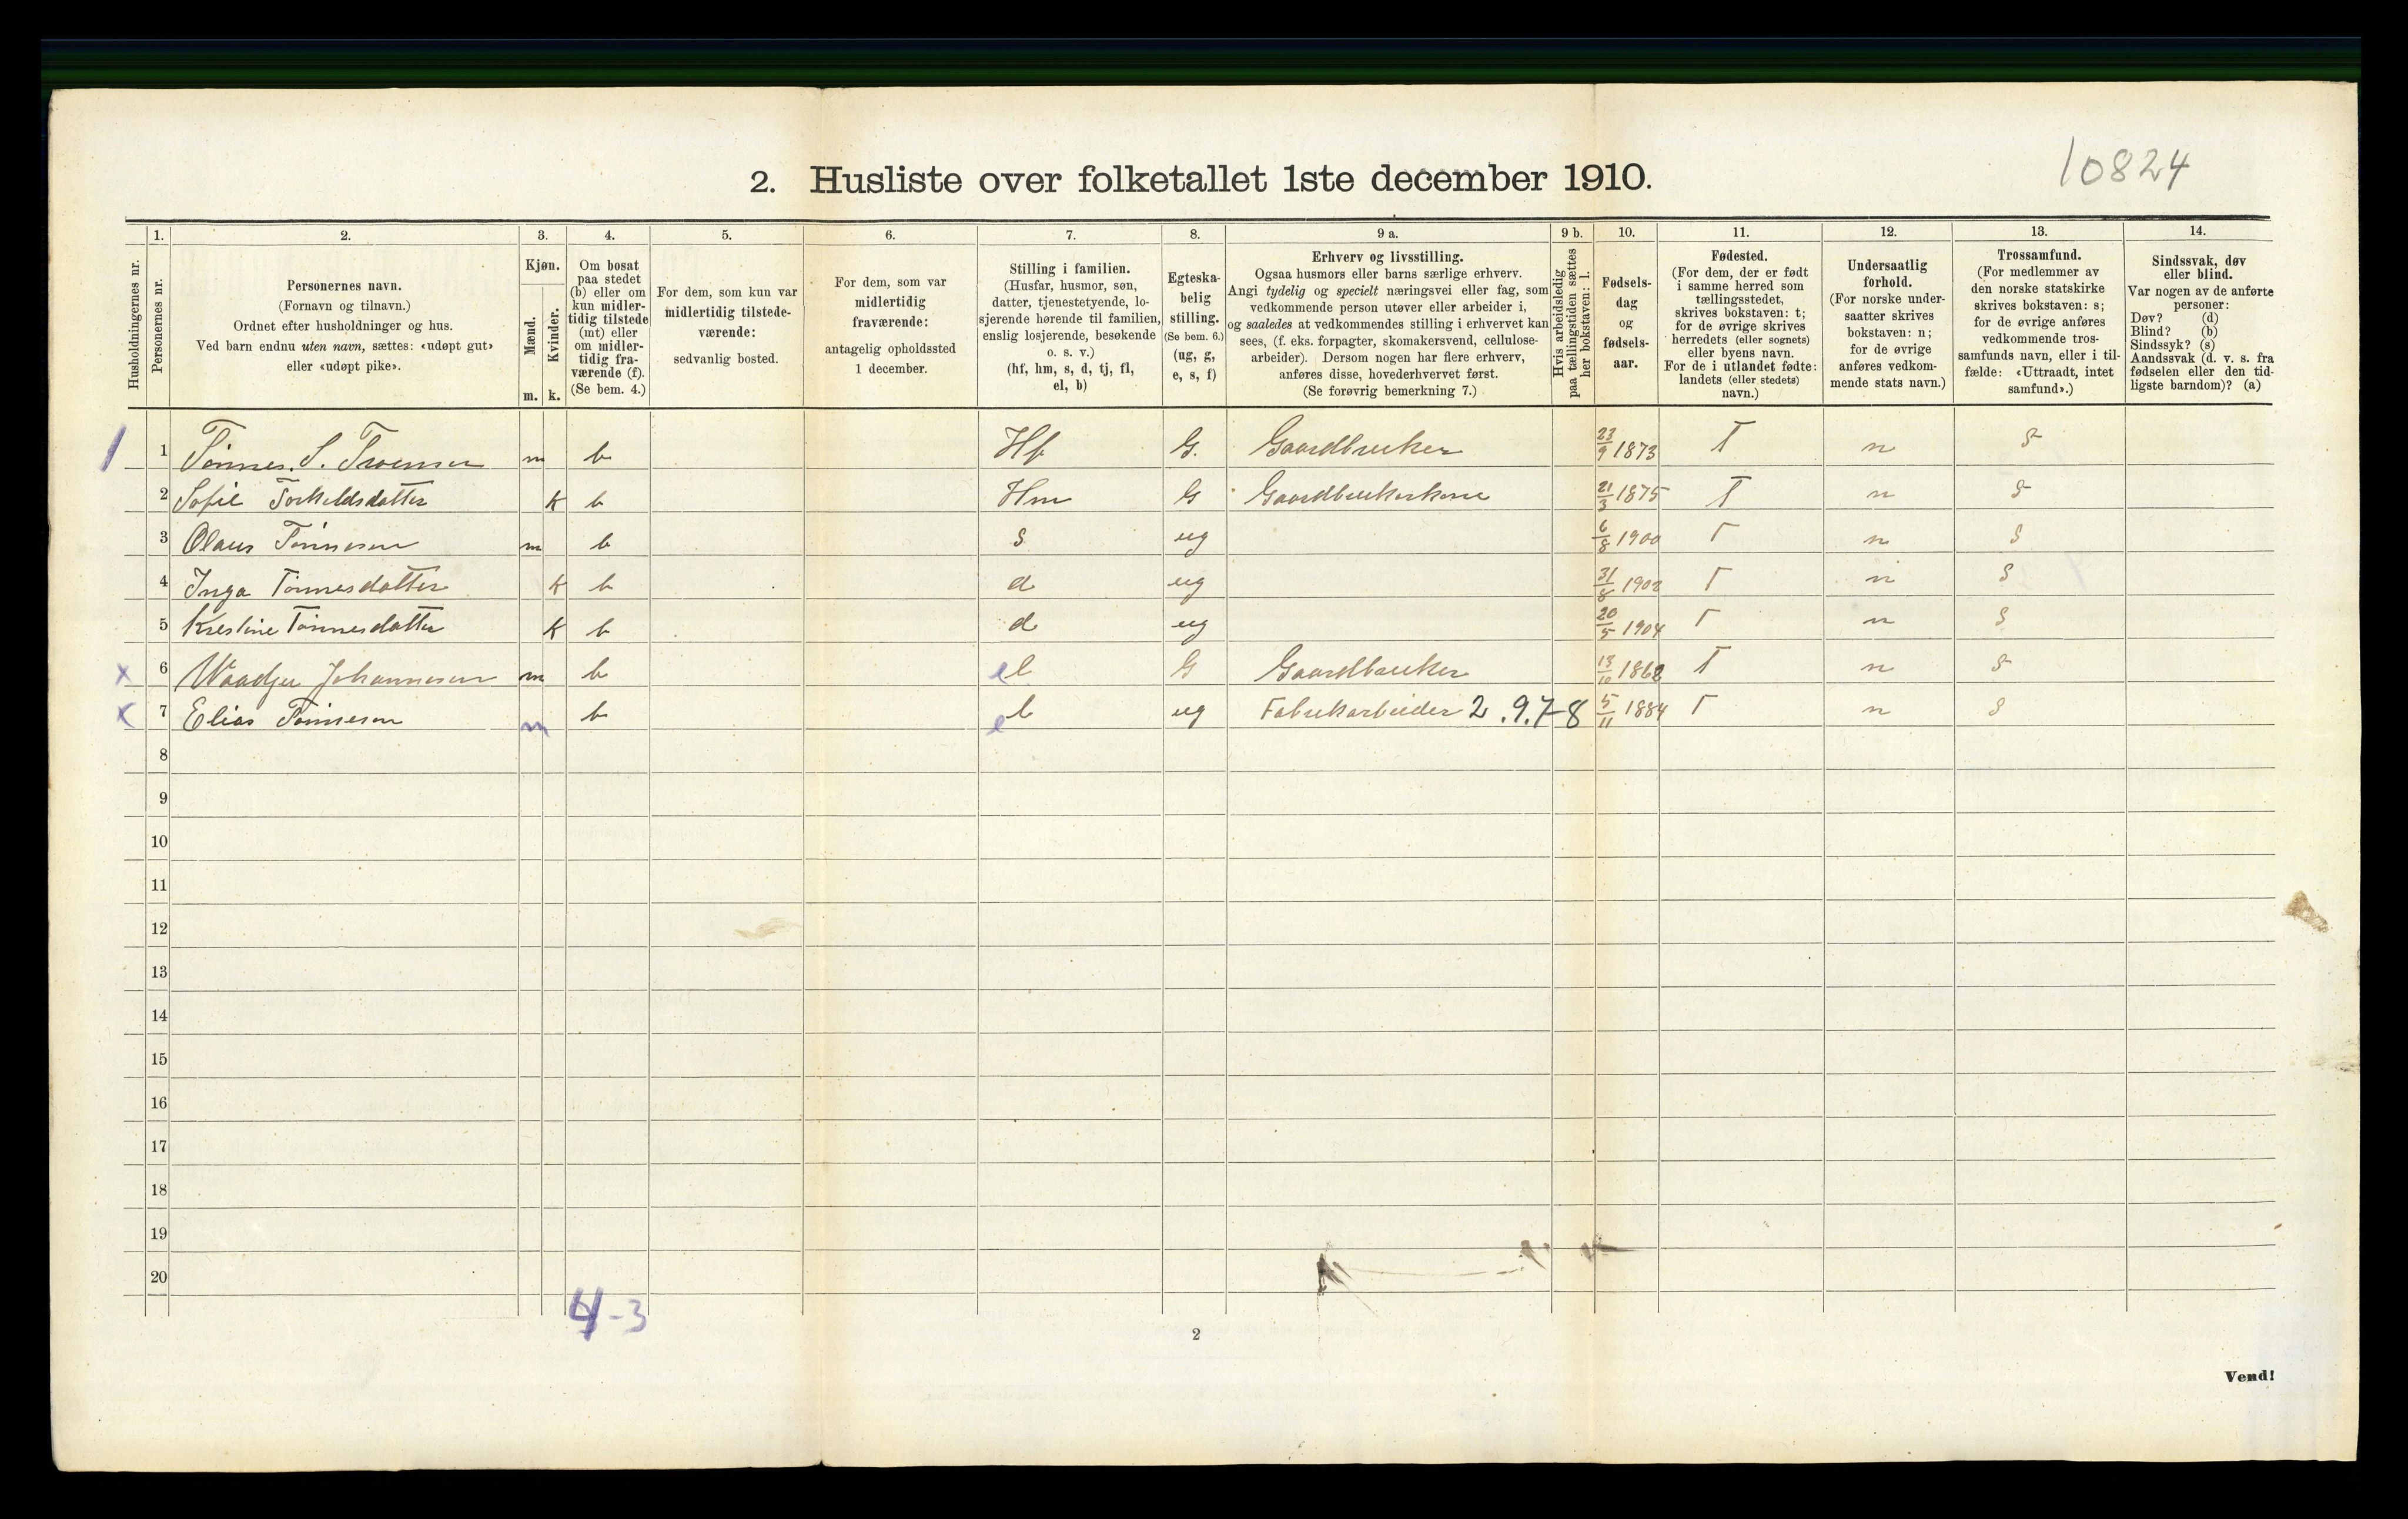 10824
2. Husliste over folketallet 1ste december 1910.
Husholdningernes nr.
1. Personernes nr.
2. Personernes navn.
(Fornavn og tilnavn.)
Ordnet efter husholdninger og hus.
Ved barn endnu uten navn, sættes: «udøpt gut»
eller «udøpt pike».
3. Kjøn.
Mænd. m.
Kvinder. k.
4. Om bosat
paa stedet
(b) eller om
kun midler-
tidig tilstede
(mt) eller
om midler-
tidig fra-
værende (f).
(Se bem. 4.)
5. For dem, som kun var
midlertidig tilstede-
værende:
sedvanlig bosted.
6. For dem, som var
midlertidig
fraværende:
antagelig opholdssted
1 december.
7. Stilling i familien.
(Husfar, husmor, søn,
datter, tjenestetyende, lo-
sjerende hørende til familien,
enslig losjerende, besøkende
o. s. v.)
(hf, hm, s, d, tj, fl,
el, b)
8. Egteska-
belig
stilling.
(Se bem. 6.)
(ug, g,
e, s, f)
9 a. Erhverv og livsstilling.
Ogsaa husmors eller barns særlige erhverv.
Angi tydelig og specielt næringsvei eller fag, som
vedkommende person utøver eller arbeider i,
og saaledes at vedkommendes stilling i erhvervet kan
sees, (f. eks. forpagter, skomakersvend, cellulose-
arbeider). Dersom nogen har flere erhverv,
anføres disse, hovederhvervet først.
(Se forøvrig bemerkning 7.)
9 b. Hvis arbeidsledig
paa tællingstiden sættes
her bokstaven: l.
10. Fødsels-
dag
og
fødsels-
aar.
11. Fødested.
(For dem, der er født
i samme herred som
tællingsstedet,
skrives bokstaven: t;
for de øvrige skrives
herredets (eller sognets)
eller byens navn.
For de i utlandet fødte:
landets (eller stedets)
navn.)
12. Undersaatlig
forhold.
(For norske under-
saatter skrives
bokstaven: n;
for de øvrige
anføres vedkom-
mende stats navn.)
13. Trossamfund.
(For medlemmer av
den norske statskirke
skrives bokstaven: s;
for de øvrige anføres
vedkommende tros-
samfunds navn, eller i til-
fælde: «Uttraadt, intet
samfund».)
14. Sindssvak, døv
eller blind.
Var nogen av de anførte
personer:
Døv? (d)
Blind? (b)
Sindssyk? (s)
Aandssvak (d. v. s. fra
fødselen eller den tid-
ligste barndom)? (a)
1 Tønnes. S. m b Hf G. Gaardbruker 23/9 1873 T n S
2 Sofie Torkeldsdatter K b Hm G Gaardbrukerkone 21/3 1875 T n S
3 Olaus Tønnesen m b s ug 6/8 1900 T n S
4 Inga Tønnesdatter K b d ug 31/8 1902 T n S
5 Krestine Tønnesdatter K b d ug 20/5 1904 T n S
x 6 Johannesen m b el G Gaardbruker 13/10 1862 T n S
x 7 Elias Tønnesen m b el ug Fabrikarbeider 2.9.7-8 5/11 1884 T n S
8
9
10
11
12
13
14
15
16
17
18
19
20
4-3
2
Vend!